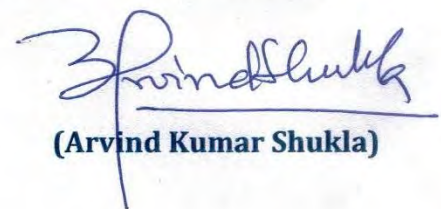 ArvindShukla
(Arvind Kumar Shukla)